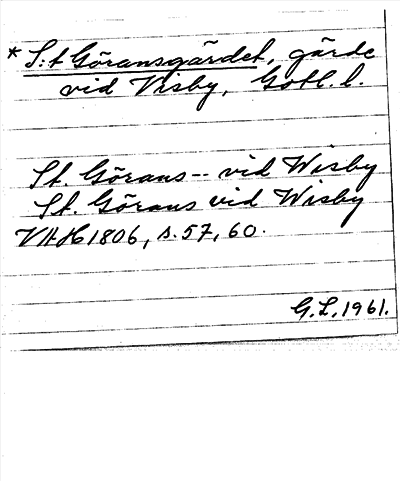 * S:t Göransgärdet, gärde
vid Visby, Gotl. l.
St. Görans -- vid Wisby
St. Görans vid Wisby
VHH 1806, s. 57, 60.
G.L. 1961.